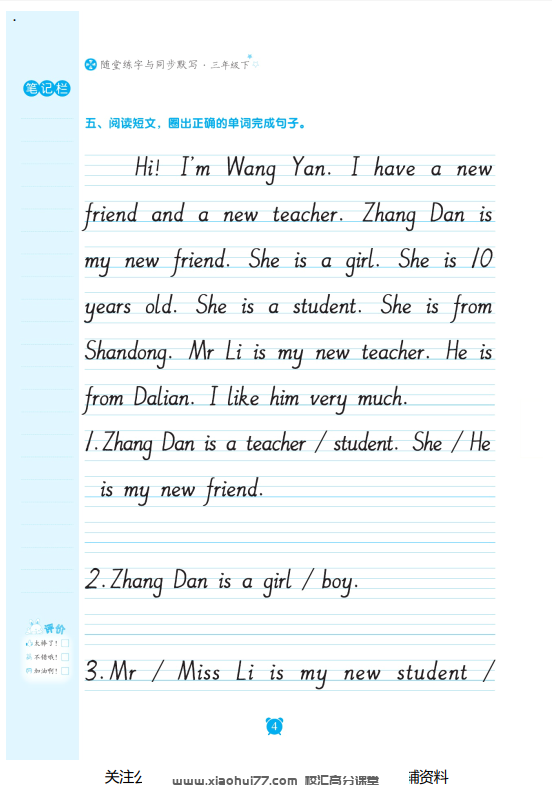 随堂练字与同步默写·三年级下
笔记栏
五、阅读短文，圈出正确的单词完成句子。
Hi! I'm Wang Yan. I have a new
friend and a new teacher. Zhang Dan is
my new friend. She is a girl. She is 10
years old. She is a student. She is from
Shandong. Mr Li is my new teacher. He is
from Dalian. I like him very much.
1. Zhang Dan is a teacher / student. She / He
is my new friend.
2. Zhang Dan is a girl / boy.
3. Mr / Miss Li is my new student /
评价
太棒了！
不错哦！
加油啊！
4
关注
www.xiaohui77.com 校汇高分课堂
辅资料